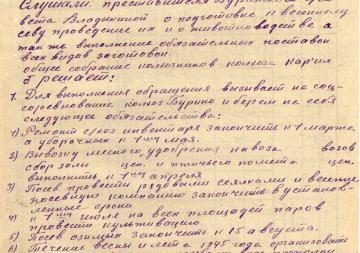 Слушали: представителя Буринского
вета Владыкиной о подготовке к весеннему
севу проведение их и о животноводстве а
так же выполнение обязательных поставок
всех видов заготовок.
общее собрание колхозников колхоза
решает:
1. Для выполнения обращения вызывает на соц-
соревнование колхоз Бурино и берем на себя
следующее обязательства:
1) Ремонт с/хоз инвентаря закончить к 1 марта
а уборочных к 1му мая.
2) Вывозку местных удобрения навоза возов
сбор золы цен. и птичьего помета цен.
выполнить к 1му апреля
3) Посев провести рядовыми сеялками и весенне
посевную компанию закончить в установ-
ленные сроки
4) к 1му июля на всех площадей паров
провести культивацию
5) Посев озимых закончить к 15 августа.
6) Течение весны и лета 1945 года организовать